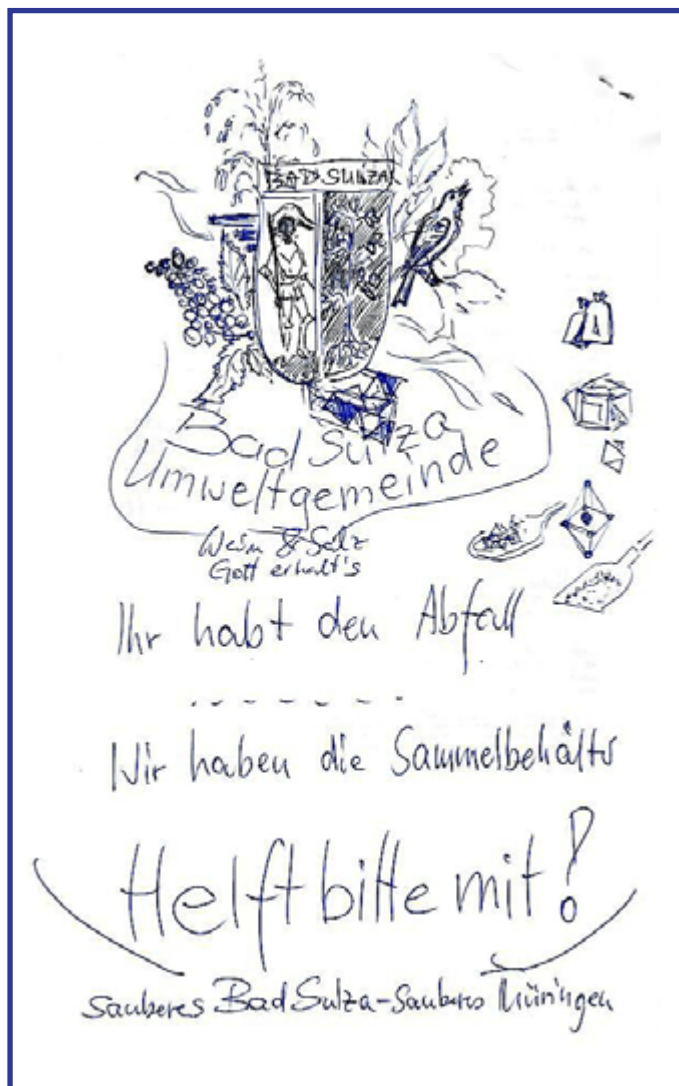 BAD SULZA
Bad Sulza
Umweltgemeinde
Wein & Salz
Gott erhalt's
Ihr habt den Abfall
Wir haben die Sammelbehälter
Helft bitte mit!
sauberes Bad Sulza - sauberes Thüringen